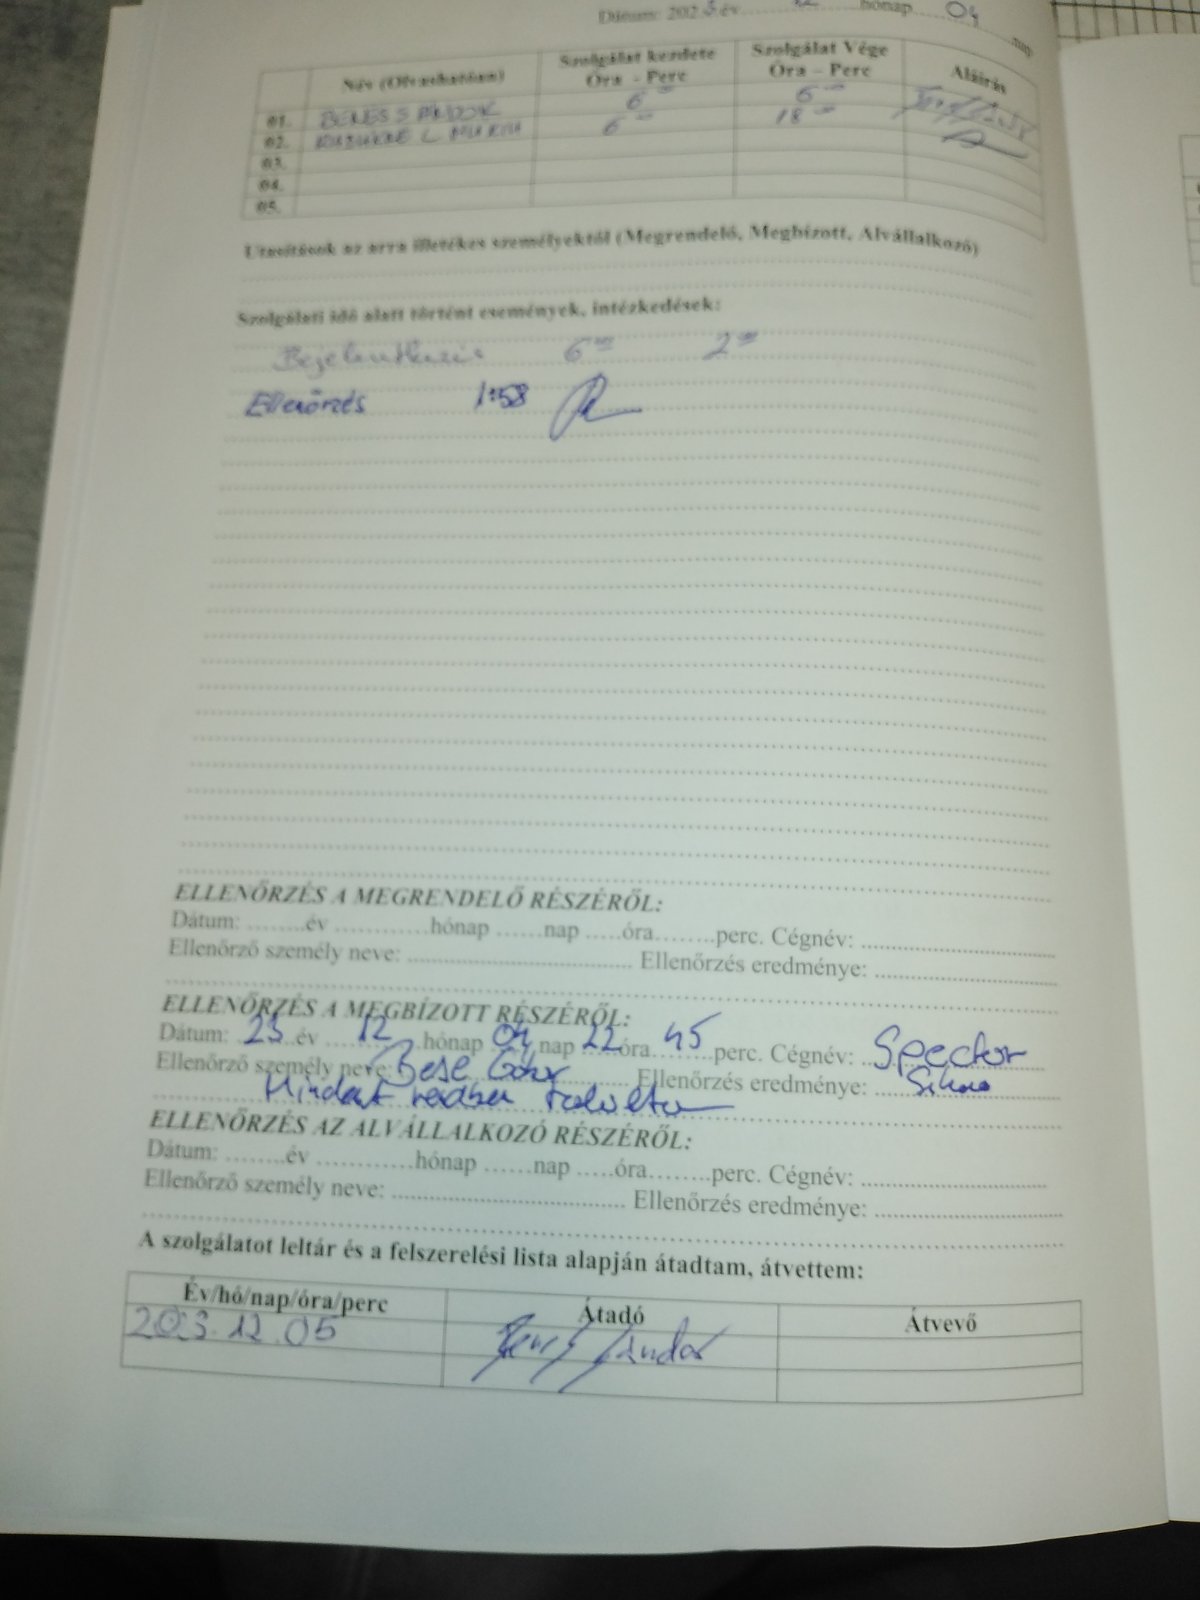 Dátum: 2023 év 12 hónap 04 nap
Név (Olvashatóan) Szolgálat kezdete Óra - Perc Szolgálat Vége Óra – Perc Aláírás
01. BENES SÁNDOR 6 00 6 00
02. 6 00 18 00
03.
04.
05.
Utasítások az arra illetékes személyektől (Megrendelő, Megbízott, Alvállalkozó)
Szolgálati idő alatt történt események, intézkedések:
Bejelentkezés 6 00 2 00
Ellenőrzés 1:58
ELLENŐRZÉS A MEGRENDELŐ RÉSZÉRŐL:
Dátum: ........év ............hónap ......nap .....óra........perc. Cégnév: ..........................
Ellenőrző személy neve: ................................ Ellenőrzés eredménye: ..........................
ELLENŐRZÉS A MEGBÍZOTT RÉSZÉRŐL:
Dátum: 23 év 12 hónap 04 nap 22 óra 45 perc. Cégnév: Spector
Ellenőrző személy neve: Bese Ellenőrzés eredménye:
Mindent rendben
ELLENŐRZÉS AZ ALVÁLLALKOZÓ RÉSZÉRŐL:
Dátum: ........év ............hónap ......nap .....óra........perc. Cégnév: ..........................
Ellenőrző személy neve: ................................ Ellenőrzés eredménye: ..........................
A szolgálatot leltár és a felszerelési lista alapján átadtam, átvettem:
Év/hó/nap/óra/perc Átadó Átvevő
2023.12.05